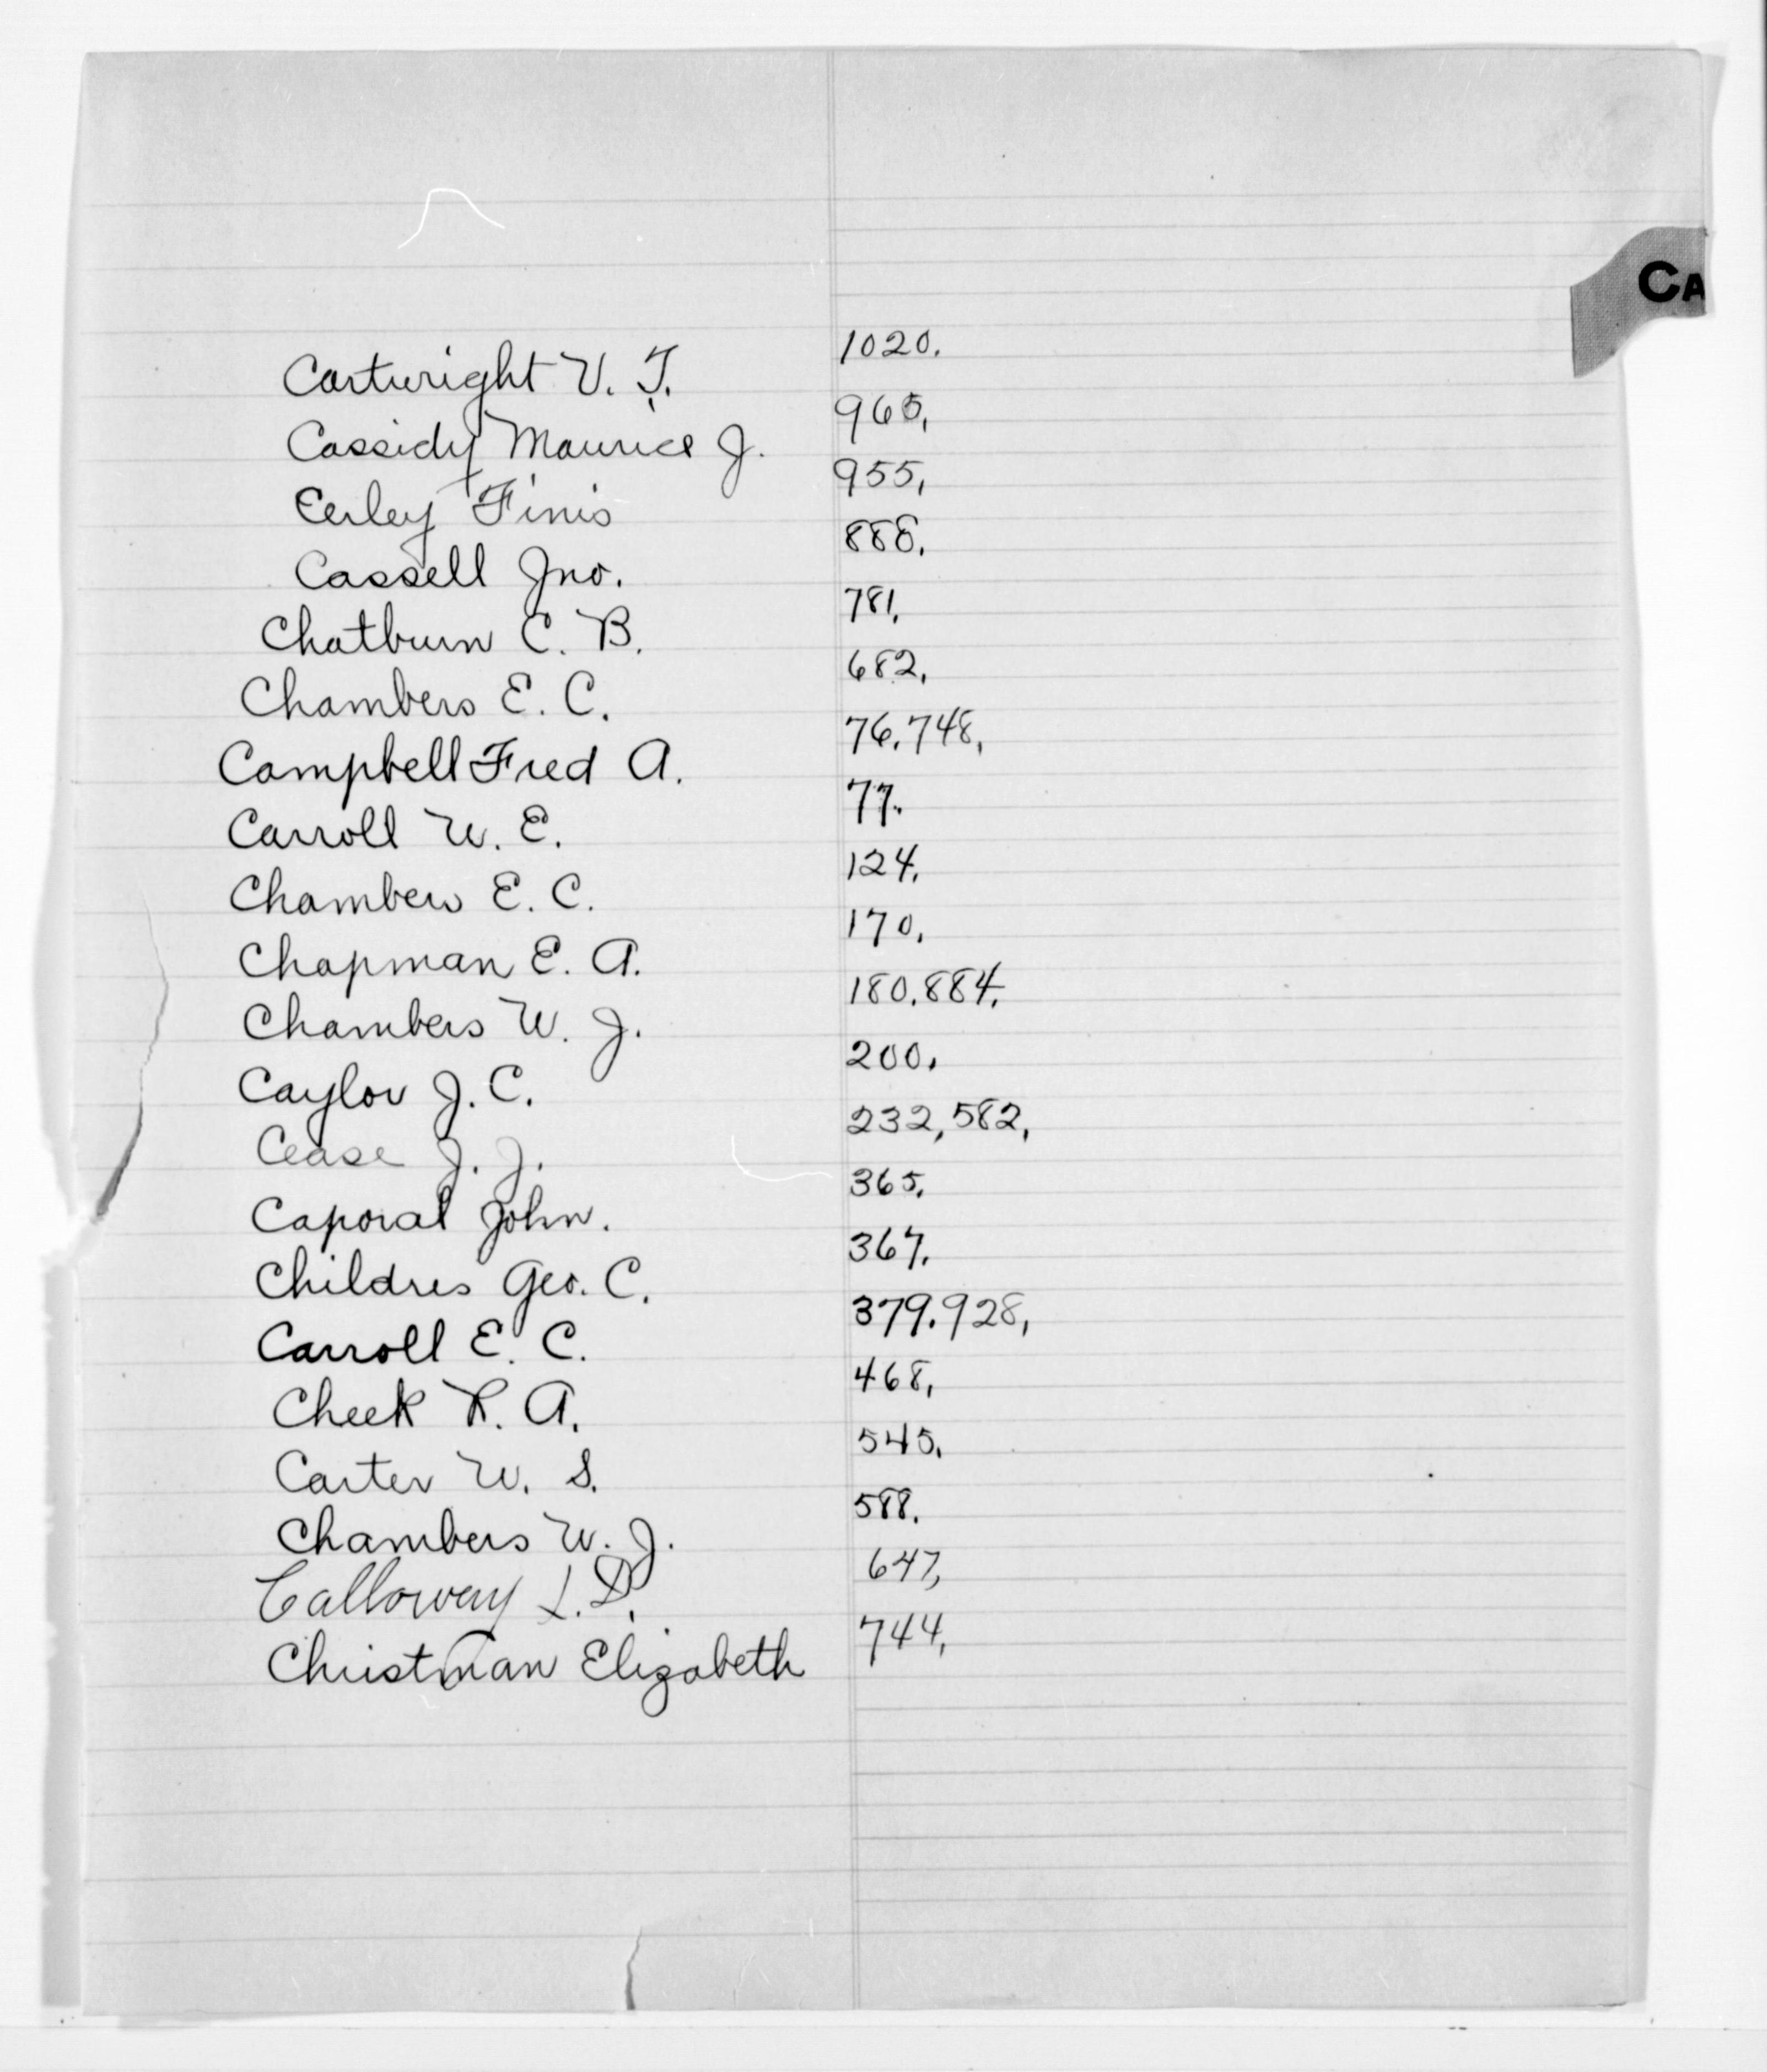 CA
Cartwright V. T. 1020.
Cassidy Maurice J. 965,
Eerley Finis 955,
Cassell Jno. 888.
Chatburn C. B. 781.
Chambers E. C. 682,
Campbell Fred A. 76. 748,
Carroll W. E. 77.
Chambers E. C. 124.
Chapman E. A. 170.
Chambers W. J. 180. 884.
Caylor J. C. 200.
Cease J. J. 232, 582,
Caporal John. 365.
Childres Geo. C. 367.
Carroll E. C. 379. 928,
Cheek R. A. 468,
Carter W. S. 545.
Chambers W. J. 588.
Calloway L. D. 647,
Christman Elizabeth 744,